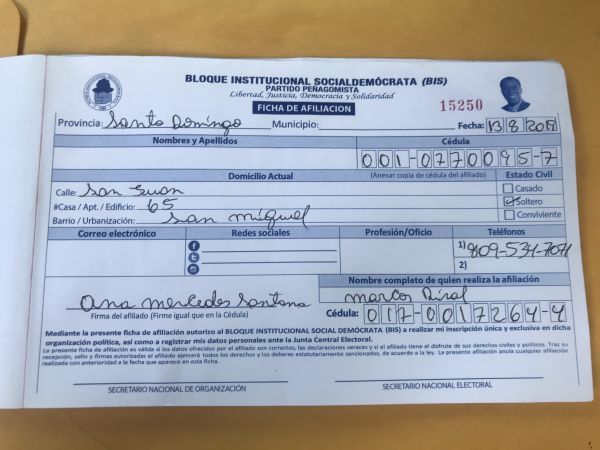 BLOQUE INSTITUCIONAL SOCIALDEMÓCRATA (BIS)
PARTIDO PEÑAGOMISTA
Libertad, Justicia, Democracia y Solidaridad
FICHA DE AFILIACION
15250
Provincia: Santo Domingo Municipio: Fecha: 13 8 2019
Nombres y Apellidos Cédula
001-0770095-7
Domicilio Actual (Anexar copia de cédula del afiliado) Estado Civil
Calle: San Juan Casado
#Casa / Apt. / Edificio: 65 Soltero
Barrio / Urbanización: San miguel Conviviente
Correo electrónico Redes sociales Profesión/Oficio Teléfonos
1) 809-531-7071
2)
Nombre completo de quien realiza la afiliación
Ana mercedes Santana marcos
Firma del afiliado (Firme igual que en la Cédula) Cédula: 017-0017264-4
Mediante la presente ficha de afiliación autorizo al BLOQUE INSTITUCIONAL SOCIAL DEMÓCRATA (BIS) a realizar mi inscripción única y exclusiva en dicha
organización política, así como a registrar mis datos personales ante la Junta Central Electoral.
La presente ficha de afiliación es válida si los datos ofrecidos por el afiliado son correctos, las declaraciones veraces y si el afiliado tiene el disfrute de sus derechos civiles y políticos. Tras su
recepción, sello y firmas autorizadas el afiliado ejercerá todos los derechos y los deberes estatutariamente sancionados, de acuerdo a la ley. La presente afiliación anula cualquier afiliación
realizada con anterioridad a la fecha que aparece en esta ficha.
SECRETARIO NACIONAL DE ORGANIZACIÓN SECRETARIO NACIONAL ELECTORAL